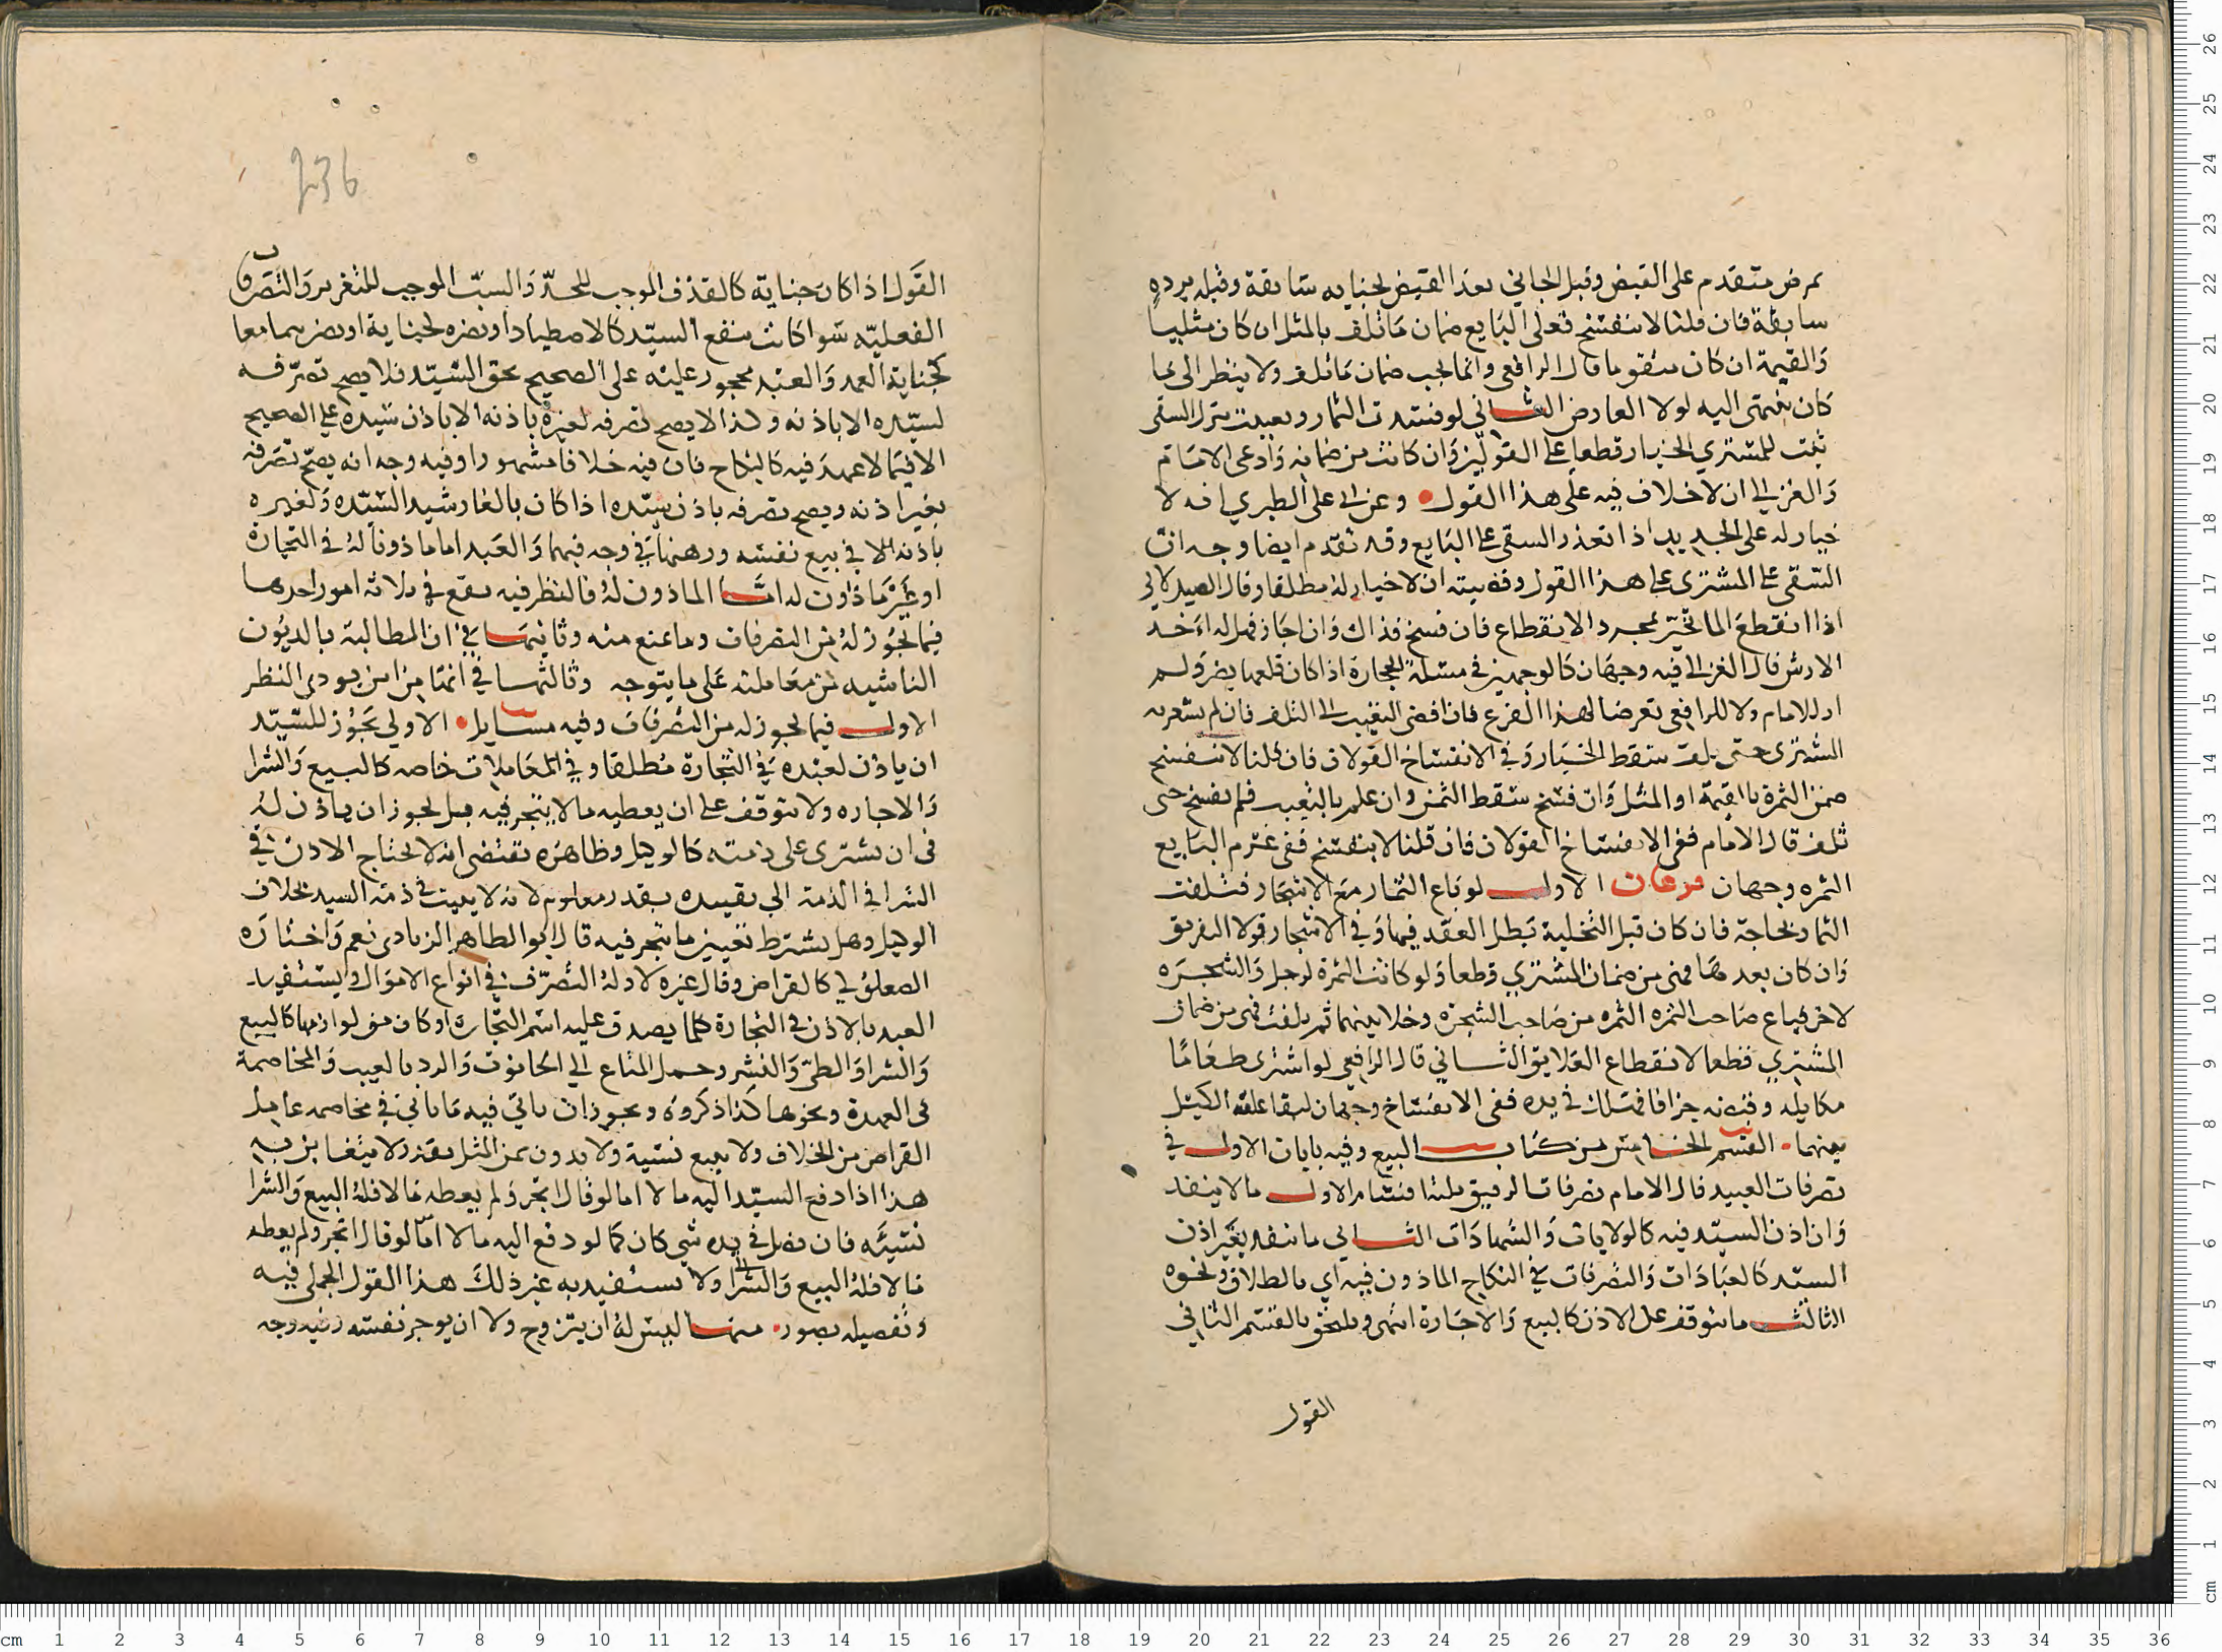 بمرض متقدم على القبض وقبل الجاني بعد القبض لجنايه سابقة وقبله برده
سابقة فان قلنا لا ينفسخ فعلى البايع ضمان ما تلف بالمثل ان كان مثليا
والقيمة ان كان متقوما قال الرافعي وانما يجب ضمان ما تلف ولا ينظر الى ما
كان ينتهى اليه لولا العارض الثاني لو فسدت الثمار وتعيبت بترك السقى
ثبت للمشتري الخيار قطعا على القولين وان كانت من ضمانه وادعى الامام
والغزالي ان لا خلاف فيه على هذا القول وعن ابي على الطبري انه لا
خيار له على الجديد اذا تعذر السقى على البايع وقد تقدم ايضا وجه ان
السقى على المشترى على هذا القول وقضيته ان لا خيار له مطلقا وقال الصيدلاني
اذا انقطع الما تخير بمجرد الانقطاع فان فسخ فذاك وان اجاز فهل له اخذ
الارش قال الغزالي فيه وجهان كالوجهين في مسئلة الحجارة اذا كان قلعها يضر ولم
ار للامام ولا للرافعي تعرضا لهذا الفرع فان افضى التعييب الى التلف فان لم يشعر به
المشترى حتى تلف سقط الخيار وفي الانفساخ القولان فان قلنا لا ينفسخ
ضمن الثمرة بالقيمة او المثل وان فسخ سقط الثمن وان علم بالتعيب فلم يفسخ حتى
تلف قال الامام ففي الانفساخ القولان فان قلنا لا ينفسخ ففي غرم البايع
الثمره وجهان فرعان الاول لو باع الثمار مع الاشجار فتلفت
الثمار بجاجة فان كان قبل التخلية بطل العقد فيها وفي الاشجار قولا التفريق
وان كان بعدها فهى من ضمان المشتري قطعا ولو كانت الثمرة لرجل والشجره
لاخر فباع صاحب الثمره الثمره من صاحب الشجرة وخلا بينهما ثم تلفت فهي من ضمان
المشتري قطعا لانقطاع العلايق الثاني قال الرافعي لو اشترى طعاما
مكايله وقبضه جزافا فهلك في يده ففى الانفساخ وجهان لبقا علقة الكيل
بينهما القسم الخامس من كتاب البيع وفيه بابان الاول في
تصرفات العبيد قال الامام تصرفات الرقيق ثلثة اقسام الاول ما لا ينفد
وان اذن السيد فيه كالولايات والشهادات الثاني ما ينفد بغير اذن
السيد كالعبادات والتصرفات في النكاح الماذون فيه اي بالطلاق ونحوه
الثالث ما يتوقف على الاذن كالبيع والاجارة انتهى ويلتحق بالقسم الثاني
القول
236
القول اذا كان جناية كالقذف الموجب للحد والسب الموجب للتغرير والتصرف
الفعليه سوا كانت بنفع السيد كالاصطياد او بضره لجناية او بضرهما معا
كجناية العمد والعبد محجور عليه على الصحيح بحق السيد فلا يصح تصرفه
لسيده الا باذنه وكذا لا يصح تصرفه لغيره باذنه الا باذن سيده على الصحيح
الا فيما لا عهدة فيه كالنكاح فان فيه خلافا مشهورا وفيه وجه انه يصح تصرفه
بغير اذنه ويصح تصرفه باذن سيده اذا كان بالغا رشيدا لسيده ولغيره
باذنه الا في بيع نفسه ورهنها في وجه فيهما والعبد اما ماذونا له في التجارة
او غير ماذون له اما الماذون له فالنظر فيه يقع في ثلاثة امور احدها
فيما يجوز له من التصرفات وما يمنع منه وثانيها في ان المطالبة بالديون
الناشيه من معاملته على ما يتوجه وثالثها في انها من اين يودى النظر
الاول فيما يجوز له من التصرفات وفيه مسايل الاولي يجوز للسيد
ان ياذن لعبده في التجارة مطلقا وفي المعاملات خاصه كالبيع والشرا
والاجاره ولا يتوقف على ان يعطيه ما لا يتجر فيه بل يجوز ان ياذن له
فى ان يشترى على ذمته كالوكيل وظاهره تقتضى انه لا يحتاج الاذن في
الشرا في الذمة الي تقييده بقدر معلوم لانه لا يثبت في ذمة السيد بخلاف
الوكيل وهل يشترط تعيين ما يتجر فيه قال ابو الطاهر الزيادى نعم واختاره
الصعلوكي كالقراض وقال غيره لا وله التصرف في انواع الاموال ويستفيد
العبد بالاذن في التجارة كلما يصدق عليه اسم التجارة او كان من لوازمها كالبيع
والشرا والطي والنشر وحمل المتاع الي الحانوت والرد بالعيب والمخاصمة
فى العهدة ونحوها كذا ذكروه ويجوز ان ياتي فيه ما ياتي في مخاصمه عامل
القراض من الخلاف ولا يبيع نسية ولا بدون ثمن المثل بقدر لا يتغابن به
هذا اذا دفع السيد اليه مالا اما لو قال اتجر ولم يعطه مالا فله البيع والشرا
نسيئه فان فضل في يده شي كان كما لو دفع اليه مالا اما لو قال اتجر ولم يعطه
مالا فله البيع والشرا ولا يستفيد به غير ذلك هذا القول الجملى فيه
وتفصيله بصور منها ليس له ان يتزوج ولا ان يوجر نفسه وفيه وجه